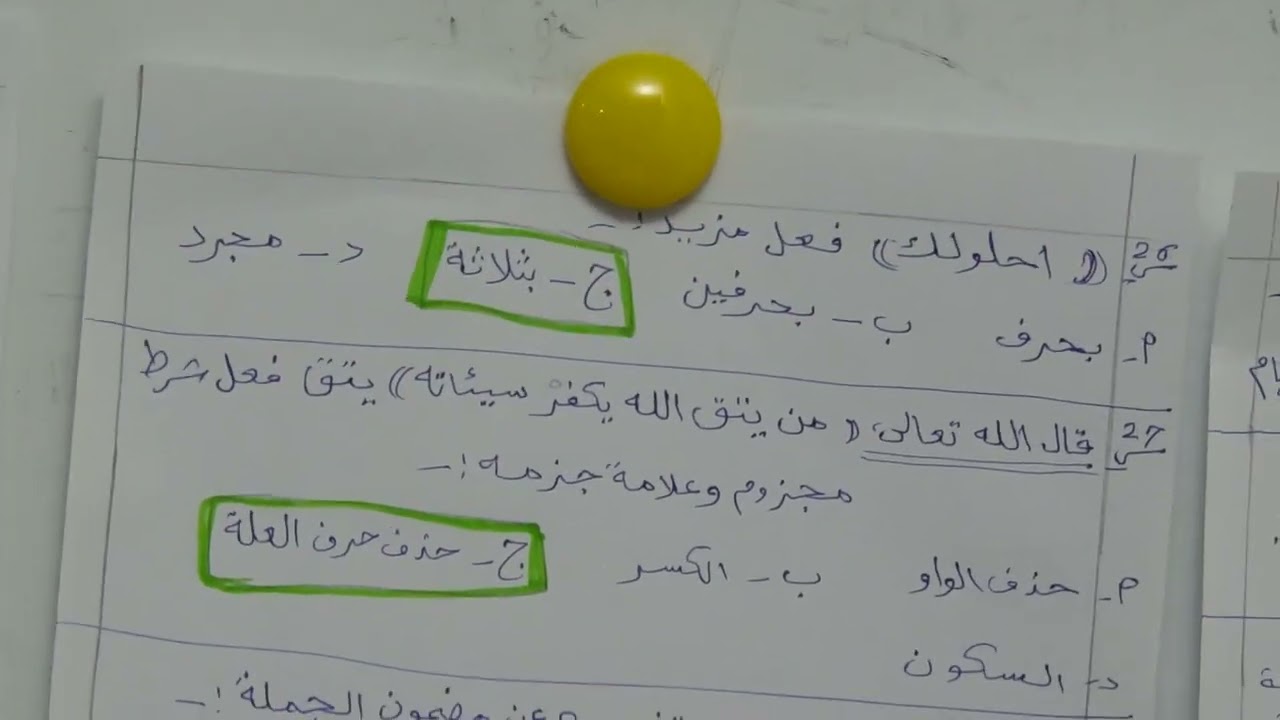 س26 (( احلولك)) فعل مزيد :-
م- بحرف ب- بحرفين ج- بثلاثة د- مجرد
س27 قال الله تعالى، (( من يتق الله يكفر سيئاته)) يتق فعل شرط
مجزوم وعلامة جزمه :-
م- حذف الواو ب- الكسر ج- حذف حرف العلة
د- السكون
الجملة :-